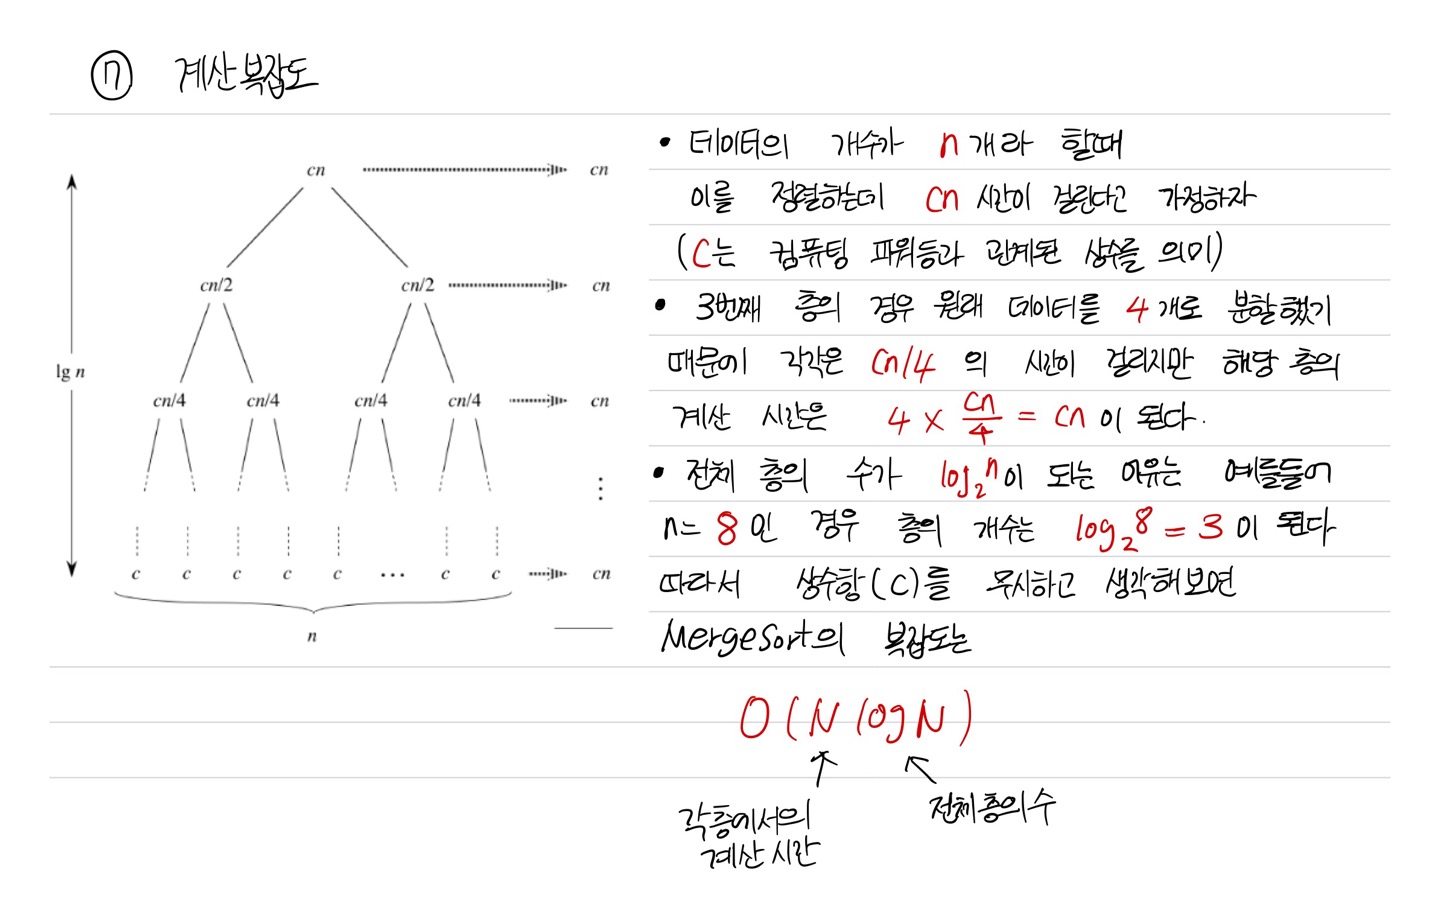 ⑦ 계산복잡도
cn cn
cn/2 cn/2 cn
lg n
cn/4 cn/4 cn/4 cn/4 cn
⋮
c c c c c ... c c cn
n
• 데이터의 개수가 n개라 할때
이를 정렬하는데 cn 시간이 걸린다고 가정하자
(C는 컴퓨팅 파워등과 관계된 상수를 의미)
• 3번째 층의 경우 원래 데이터를 4개로 분할했기
때문에 각각은 cn/4 의 시간이 걸리지만 해당 층의
계산 시간은 4 × cn/4 = cn이 된다.
• 전체 층의 수가 log₂n이 되는 이유는 예를들어
n= 8인 경우 층의 개수는 log₂8 = 3이 된다
따라서 상수항(C)를 무시하고 생각해보면
MergeSort의 복잡도는
O(N log N)
각층에서의
계산 시간
전체층의수